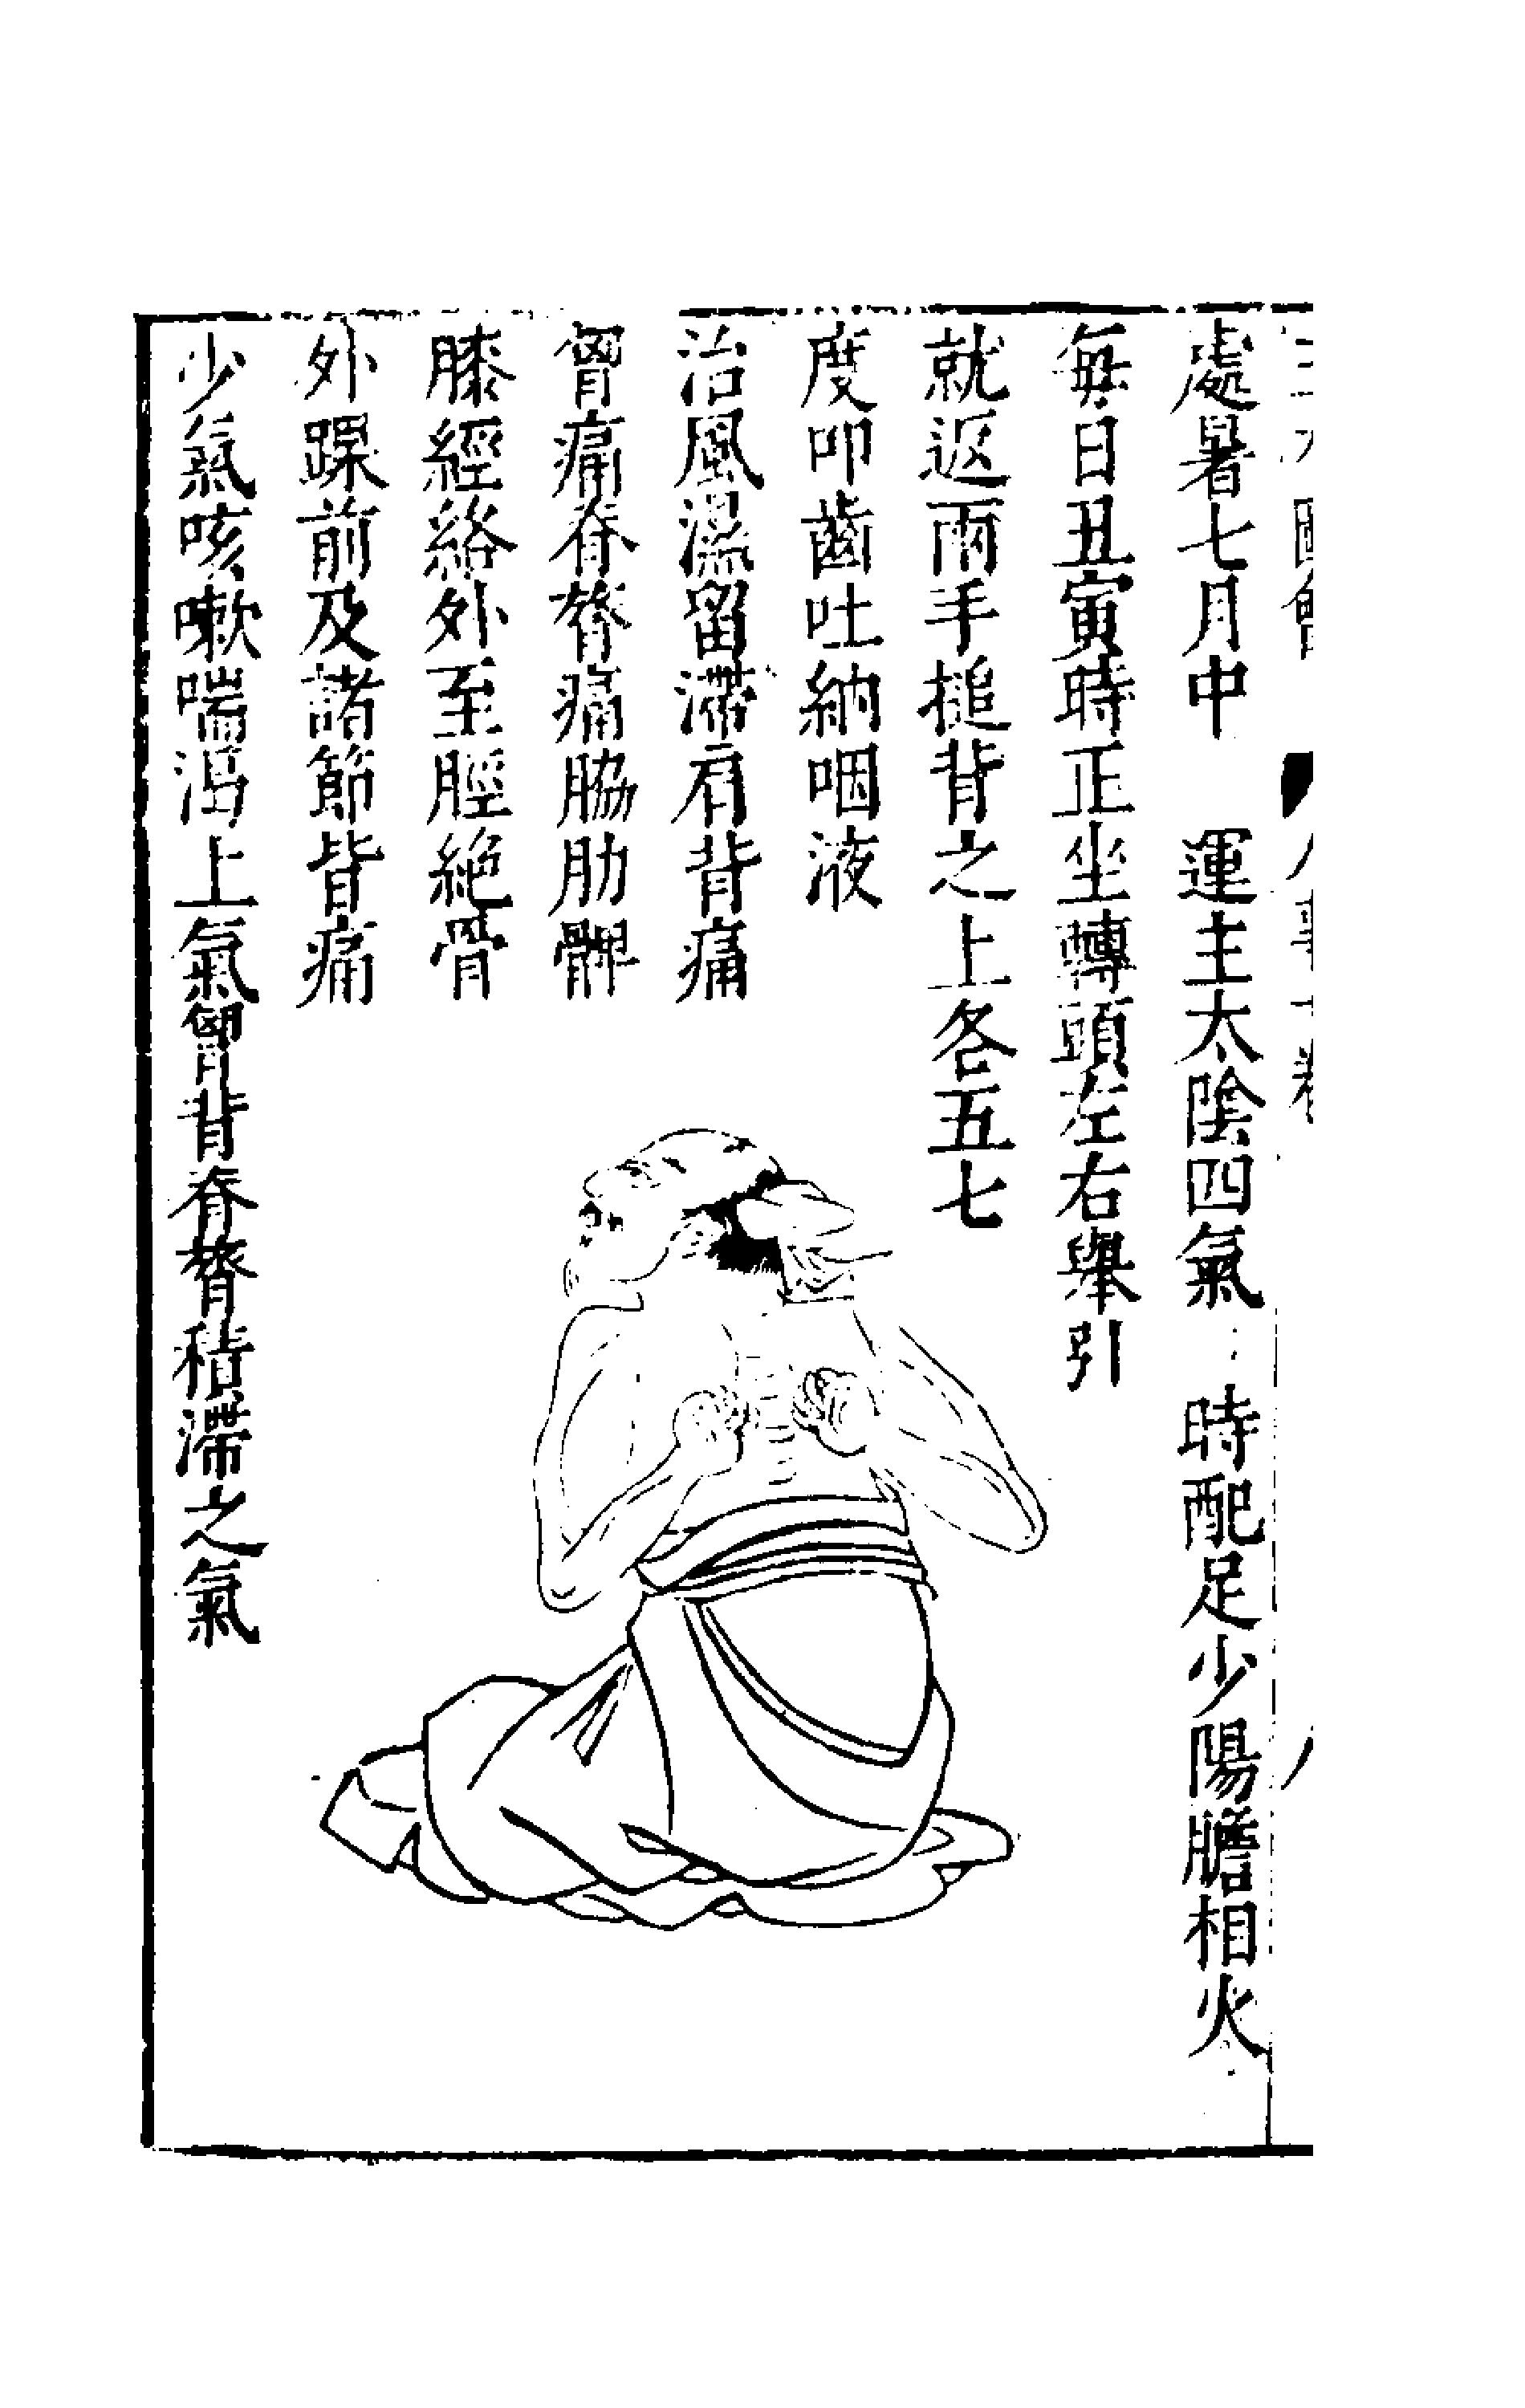 處暑七月中　運主太陰四氣　時配足少陽膽相火
每日丑寅時正坐轉頭左右舉引
就返兩手槌背之上各五七
度叩齒吐納咽液
治風濕留滯肩背痛
胷痛脊膂痛脇肋髀
膝經絡外至脛絶骨
外踝前及諸節皆痛
少氣咳嗽喘渴上氣胷背脊膂積滯之氣